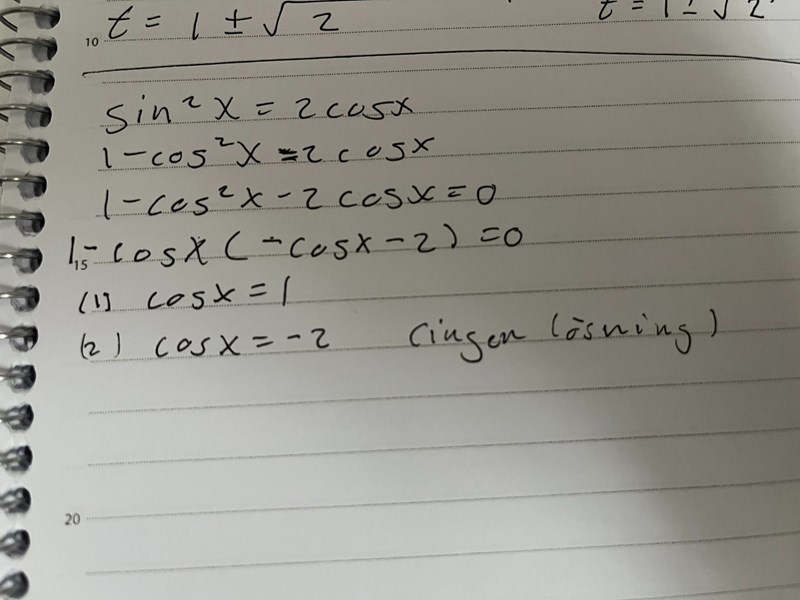 10 t = 1 ± √2 t = 1 ± √2
sin² x = 2 cosx
1 - cos² x = 2 cosx
1 - cos² x - 2 cosx = 0
15 1 - cosx ( - cosx - 2 ) = 0
(1) cosx = 1
(2) cosx = -2 (ingen lösning)
20